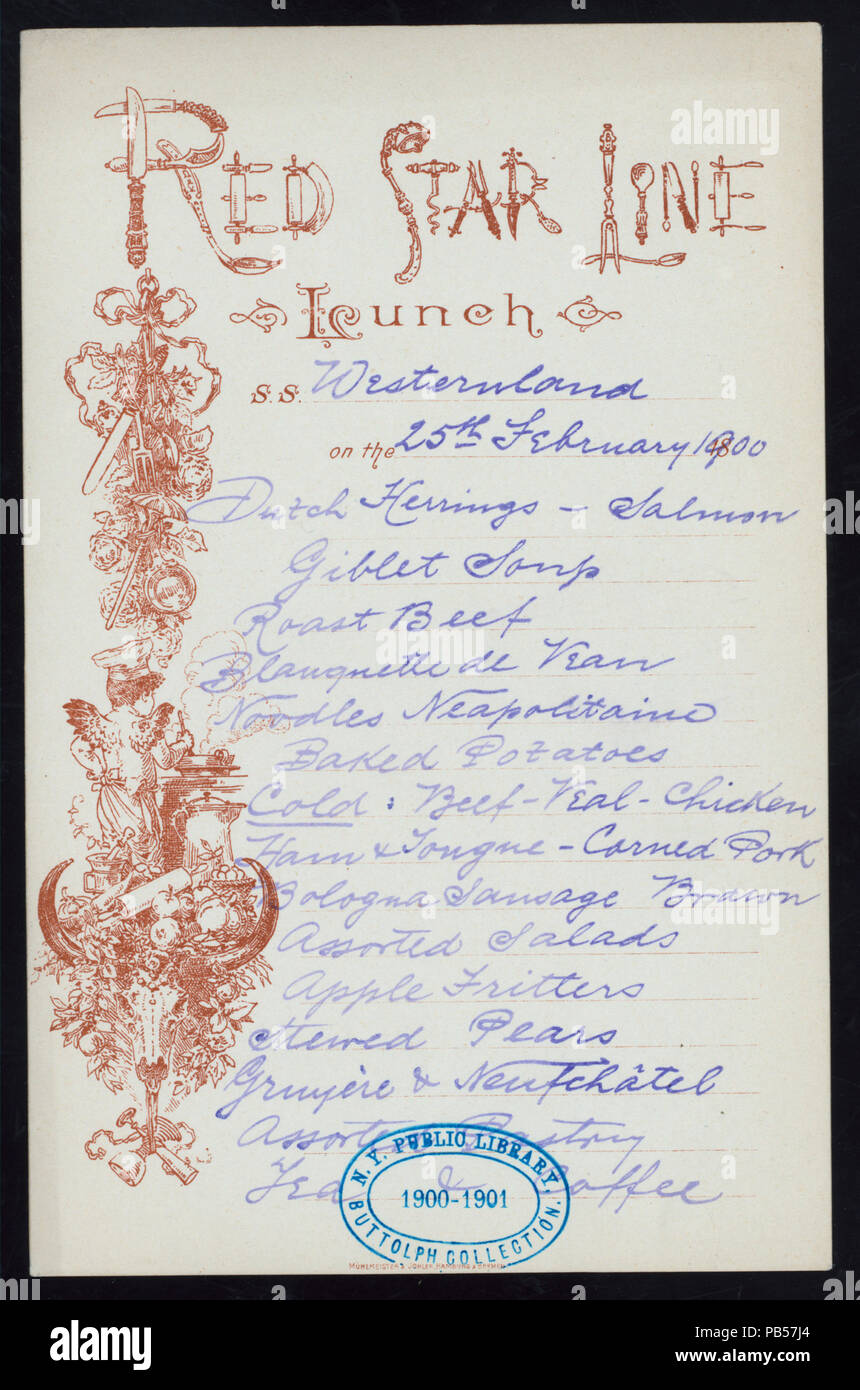 RED STAR LINE
Lunch
S.S. Westernland
on the 25th February 1900
Dutch Herrings - Salmon
Giblet Soup
Roast Beef
Blanquette de Veau
Noodles Neapolitaine
Baked Potatoes
Cold: Beef - Veal - Chicken
Ham & Tongue - Corned Pork
Bologna Sausage Brawn
Assorted Salads
Apple Fritters
Stewed Pears
Gruyère & Neufchâtel
Assorted Pastry
Tea & Coffee
N.Y. PUBLIC LIBRARY,
1900-1901
BUTTOLPH COLLECTION.
MÜHLMEISTER & JOHLER, HAMBURG & BREMEN
alamy
alamy
Image ID: PB57J4
www.alamy.com